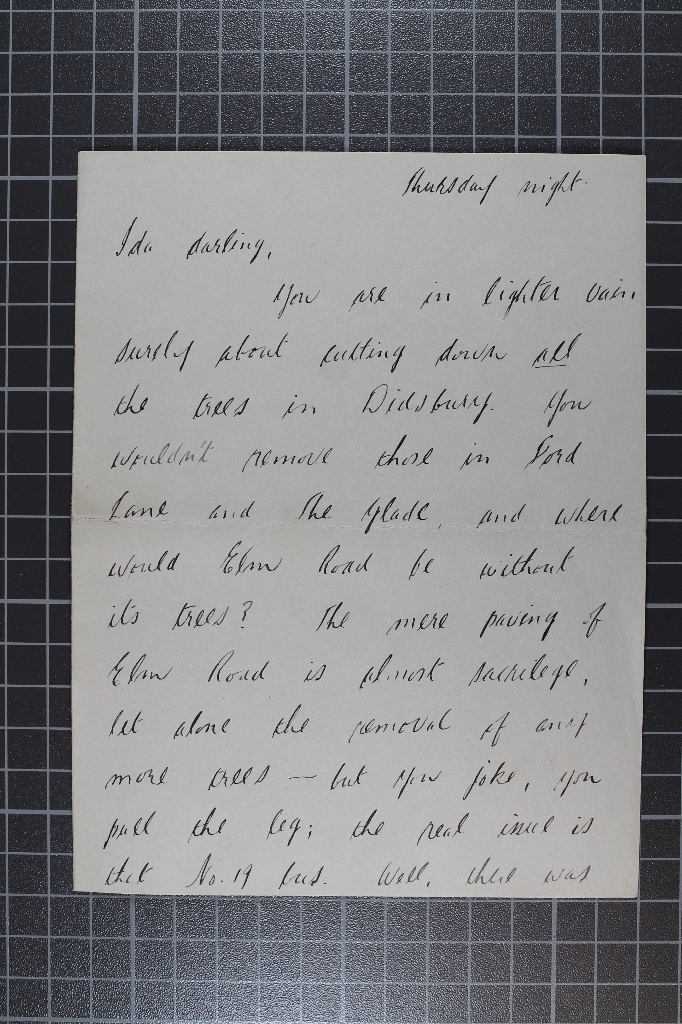 Thursday night.
Ida darling,
You are in lighter vain
surely about cutting down all
the trees in Didsbury. You
wouldn't remove those in Ford
Lane and The Glade, and where
would Elm Road be without
its trees? The mere paving of
Elm Road is almost sacrilege,
let alone the removal of any
more trees — but you joke, you
pull the leg; the real issue is
that No. 19 bus. Well, there was